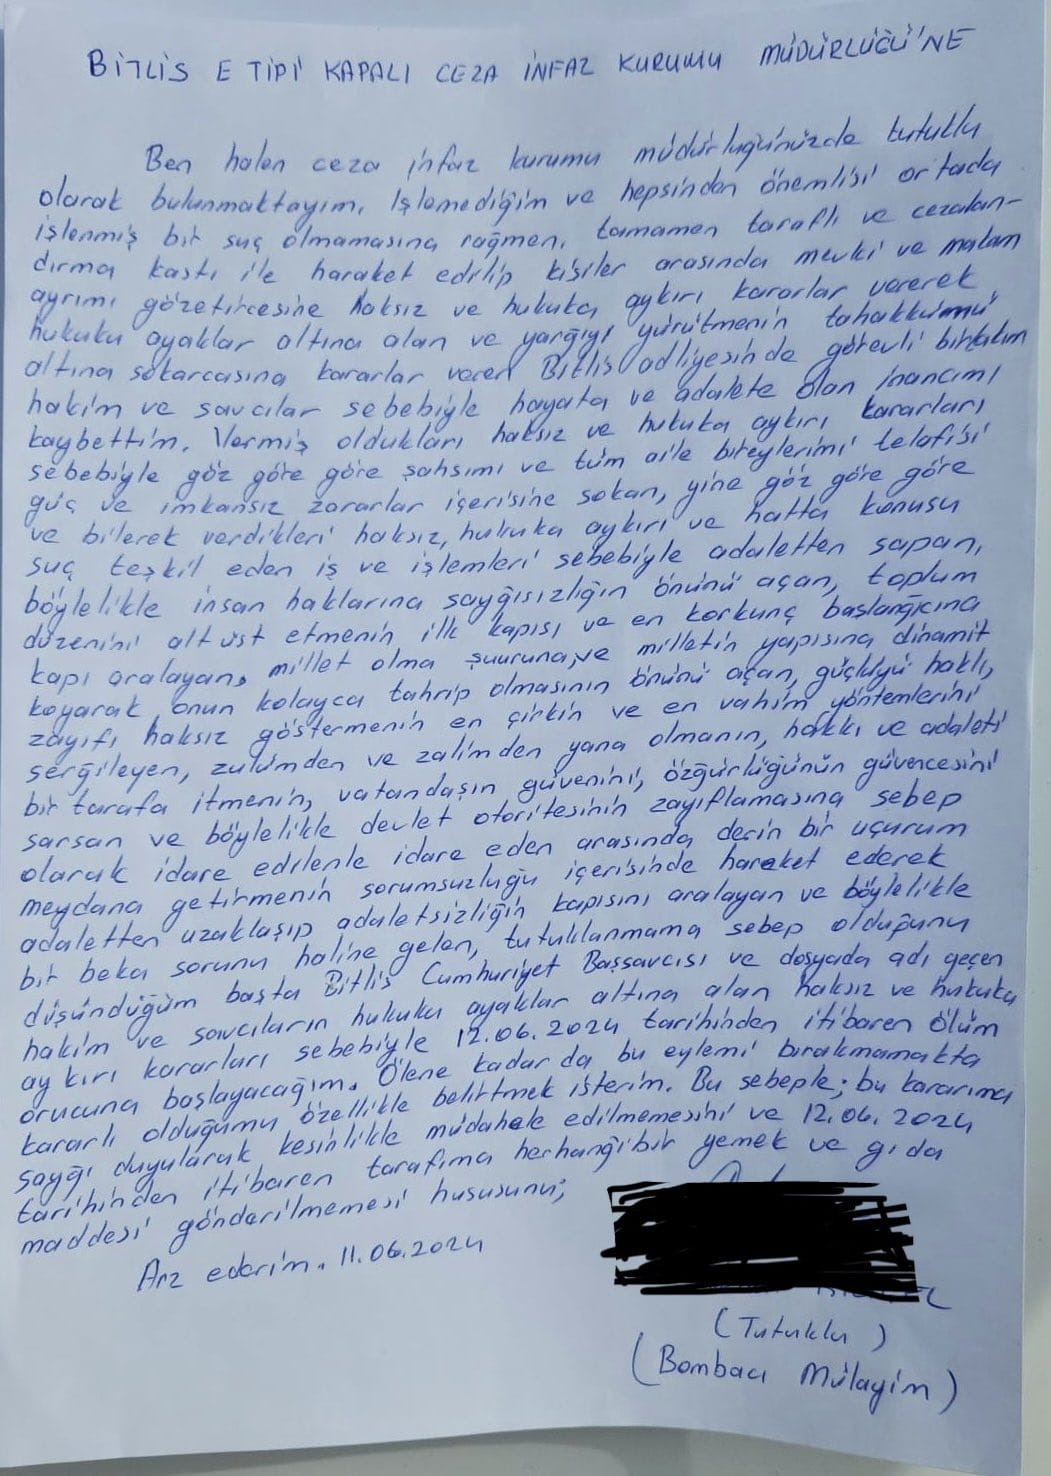 BİTLİS E TİPİ KAPALI CEZA İNFAZ KURUMU MÜDÜRLÜĞÜ'NE
Ben halen ceza infaz kurumu müdürlüğünüzde tutuklu
olarak bulunmaktayım. İşlemediğim ve hepsinden önemlisi ortada
işlenmiş bir suç olmamasına rağmen, tamamen taraflı ve cezalan-
dırma kastı ile haraket edilip kişiler arasında mevki ve makam
ayrımı gözetircesine haksız ve hukuka aykırı kararlar vererek
hukuku ayaklar altına alan ve yargıyı yürütmenin tahakkümü
altına sokarcasına kararlar veren Bitlis adliyesinde görevli birtakım
hakim ve savcılar sebebiyle hayata ve adalete olan inancımı
kaybettim. Vermiş oldukları haksız ve hukuka aykırı kararları
sebebiyle göz göre göre şahsımı ve tüm aile bireylerimi telafisi
güç ve imkansız zararlar içerisine sokan, yine göz göre göre
ve bilerek verdikleri haksız, hukuka aykırı ve hatta konusu
suç teşkil eden iş ve işlemleri sebebiyle adaletten sapan,
böylelikle insan haklarına saygısızlığın önünü açan, toplum
düzenini alt üst etmenin ilk kapısı ve en korkunç başlangıcına
kapı aralayan, millet olma şuuruna ve milletin yapısına dinamit
koyarak onun kolayca tahrip olmasının önünü açan, güçlüyü haklı,
zayıfı haksız göstermenin en çirkin ve en vahim yöntemlerini
sergileyen, zulümden ve zalimden yana olmanın, hakkı ve adaleti
bir tarafa itmenin, vatandaşın güvenini, özgürlüğünün güvencesini
sarsan ve böylelikle devlet otoritesinin zayıflamasına sebep
olarak idare edilenle idare eden arasında derin bir uçurum
meydana getirmenin sorumsuzluğu içerisinde hareket ederek
adaletten uzaklaşıp adaletsizliğin kapısını aralayan ve böylelikle
bir beka sorunu haline gelen, tutuklanmama sebep olduğunu
düşündüğüm başta Bitlis Cumhuriyet Başsavcısı ve dosyada adı geçen
hakim ve savcıların hukuku ayaklar altına alan haksız ve hukuka
aykırı kararları sebebiyle 12.06.2024 tarihinden itibaren ölüm
orucuna başlayacağım. Ölene kadar da bu eylemi bırakmamakta
kararlı olduğumu özellikle belirtmek isterim. Bu sebeple; bu kararıma
saygı duyularak kesinlikle müdahale edilmemesini ve 12.06.2024
tarihinden itibaren tarafıma herhangibir yemek ve gıda
maddesi gönderilmemesi hususunu;
Arz ederim. 11.06.2024
(Tutuklu)
(Bombacı Mülayim)